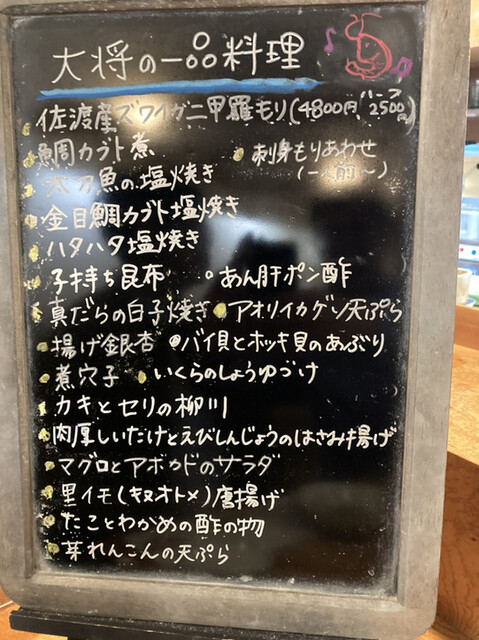 大将の一品料理
佐渡産ズワイガニ甲羅もり(4800円, ハーフ2500円)
鯛カブト煮 刺身もりあわせ
(一人前〜)
太刀魚の塩焼き
金目鯛カブト塩焼き
ハタハタ塩焼き
子持ち昆布 あん肝ポン酢
真だらの白子焼き アオリイカゲソ天ぷら
揚げ銀杏 バイ貝とホッキ貝のあぶり
煮穴子 いくらのしょうゆづけ
カキとセリの柳川
肉厚しいたけとえびしんじょうのはさみ揚げ
マグロとアボカドのサラダ
里イモ(キヌオトメ)唐揚げ
たことわかめの酢の物
芽れんこんの天ぷら